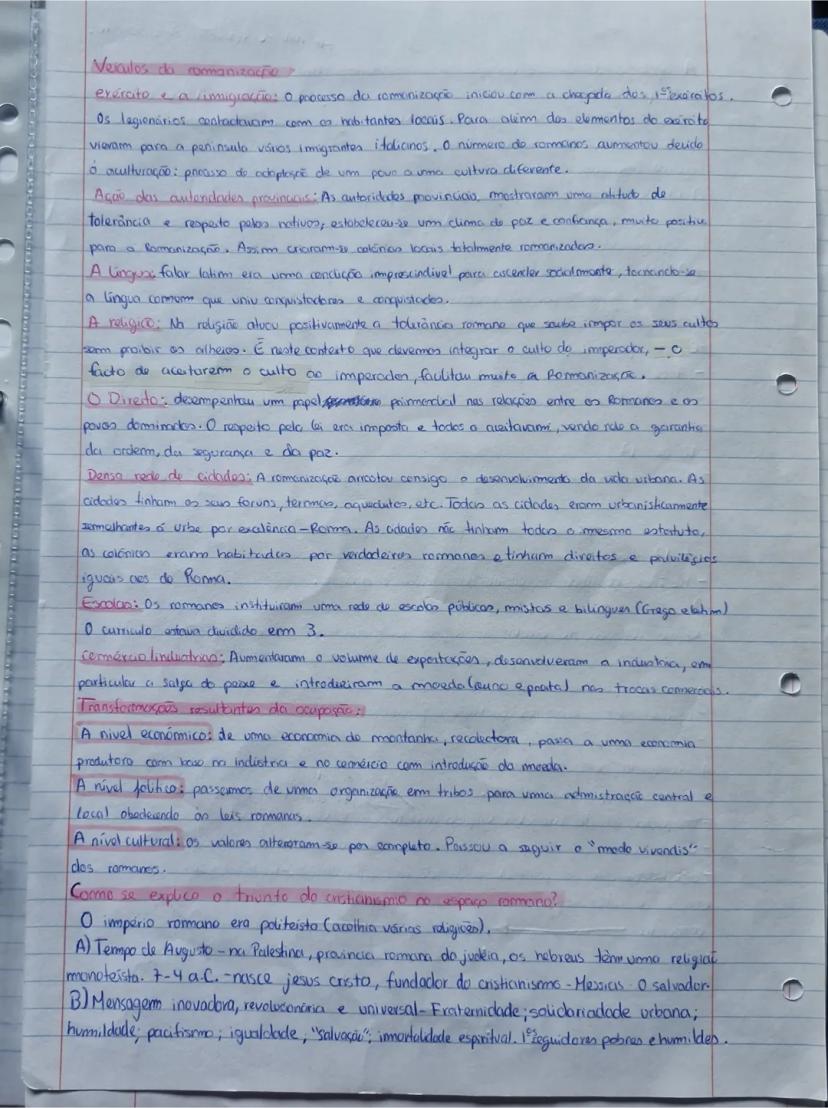 Veiculos da romanização:
exército e a imigração: O processo da romanização iniciou com a chegada dos 1ºs exércitos.
Os legionários contactavam com os habitantes locais. Para além dos elementos do exército
vieram para a peninsula vários imigrantes italianos. O número de romanos aumentou devido
á aculturação: processo de adaptação de um povo a uma cultura diferente.
Ação das autoridades provinciais: As autoridades provinciais, mostraram uma atitude de
tolerância e respeito pelos nativos, estabeleceu-se um clima de paz e confiança, muito positivo
para a Romanização. Assim criaram-se colónias locais totalmente romanizados.
A Língua: falar latim era uma condição imprescindivel para ascender socialmente, tornando-se
a língua comum que uniu conquistadores e conquistados.
A religião: Na religião atuou positivamente a tolerância romana que soube impor os seus cultos
sem proibir os alheios. É neste contexto que devemos integrar o culto do imperador, - o
facto de aceitarem o culto ao imperador, facilitou muito a Romanização.
O Direito: desempenhou um papel primordial nas relações entre os Romanos e os
povos dominados. O respeito pela lei era imposta e todos o aceitavam, vendo nele a garantia
da ordem, da segurança e da paz.
Densa rede de cidades: A romanização arrastou consigo o desenvolvimento da vida urbana. As
cidades tinham os seus foruns, termas, aquedutos, etc. Todas as cidades eram urbanisticamente
semelhantes á urbe por exelência - Roma. As cidades não tinham todas o mesmo estatuto,
as colónias eram habitadas por verdadeiros romanos e tinham direitos e privilégios
iguais aos de Roma.
Escolas: Os romanos instituiram uma rede de escolas públicas, mistas e bilingues (Grego e latim)
O curriculo estava dividido em 3.
Comércio/industrias: Aumentaram o volume de exportações, desenvolveram a industria, em
particular a salga do peixe e introduziram a moeda (ouro e prata) nas trocas comerciais.
Transformações resultantes da ocupação:
A nivel económico: de uma economia de montanha, recolectora, passa a uma economia
produtora com base na indústria e no comércio com introdução da moeda.
A nível político: passamos de uma organização em tribos para uma admistração central e
local obedecendo às leis romanas.
A nível cultural: os valores alteraram-se por completo. Passou a seguir o "modo vivendis"
dos romanos.
Como se explica o triunfo do cristianismo no espaço romano?
O império romano era politeísta (acolhia várias religiões).
A) Tempo de Augusto - na Palestina, provincia romana da judéia, os hebreus têm uma religião
monoteísta. 7-4 a.C. - nasce jesus cristo, fundador do cristianismo - Messias. O salvador.
B) Mensagem inovadora, revolucionária e universal - Fraternidade; solidariadade urbana;
humildade; pacifismo; igualdade; "salvação"; imortalidade espiritual. 1ºs seguidores pobres e humildes.